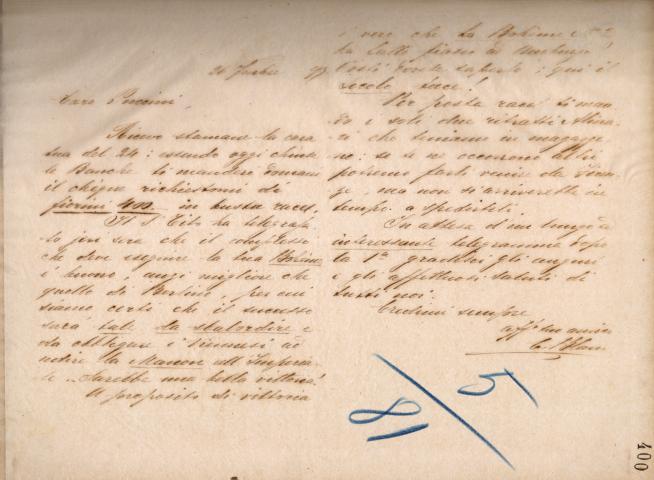 Caro Puccini,
Ricevo stamane la cara
tua del 24: essendo oggi chiuse
le Banche ti manderò domani
il chèque richiestomi di
fiorini 400 in busta racc.
Il S. Tito ha telegrafa-
to jeri sera che il complesso
che deve eseguire la tua Bohème
è buono, anzi migliore che
quello di Berlino, per cui
siamo certi che il successo
sarà tale da sbalordire e
da obbligare i viennesi ad
udire la Manon all'Imperia-
le. Sarebbe una bella vittoria!
A proposito di vittoria
è vero che la Bohème
ha fatto fiasco a
Così avete saputo: qui il
Secolo tace!
Per posta racc. ti man-
do i soli due ritratti Alina-
ri che teniamo in magazzi-
no: se te ne occorrono altri
potremo farli venire da Firen-
ze, ma non si arriverebbe in
tempo a spedirteli.
In attesa d'un tuo
interessante telegramma dopo
la 1ª gradisci gli auguri
e gli affettuosi saluti di
tutti noi.
Credimi sempre
aff.º tuo amico
5/81
400